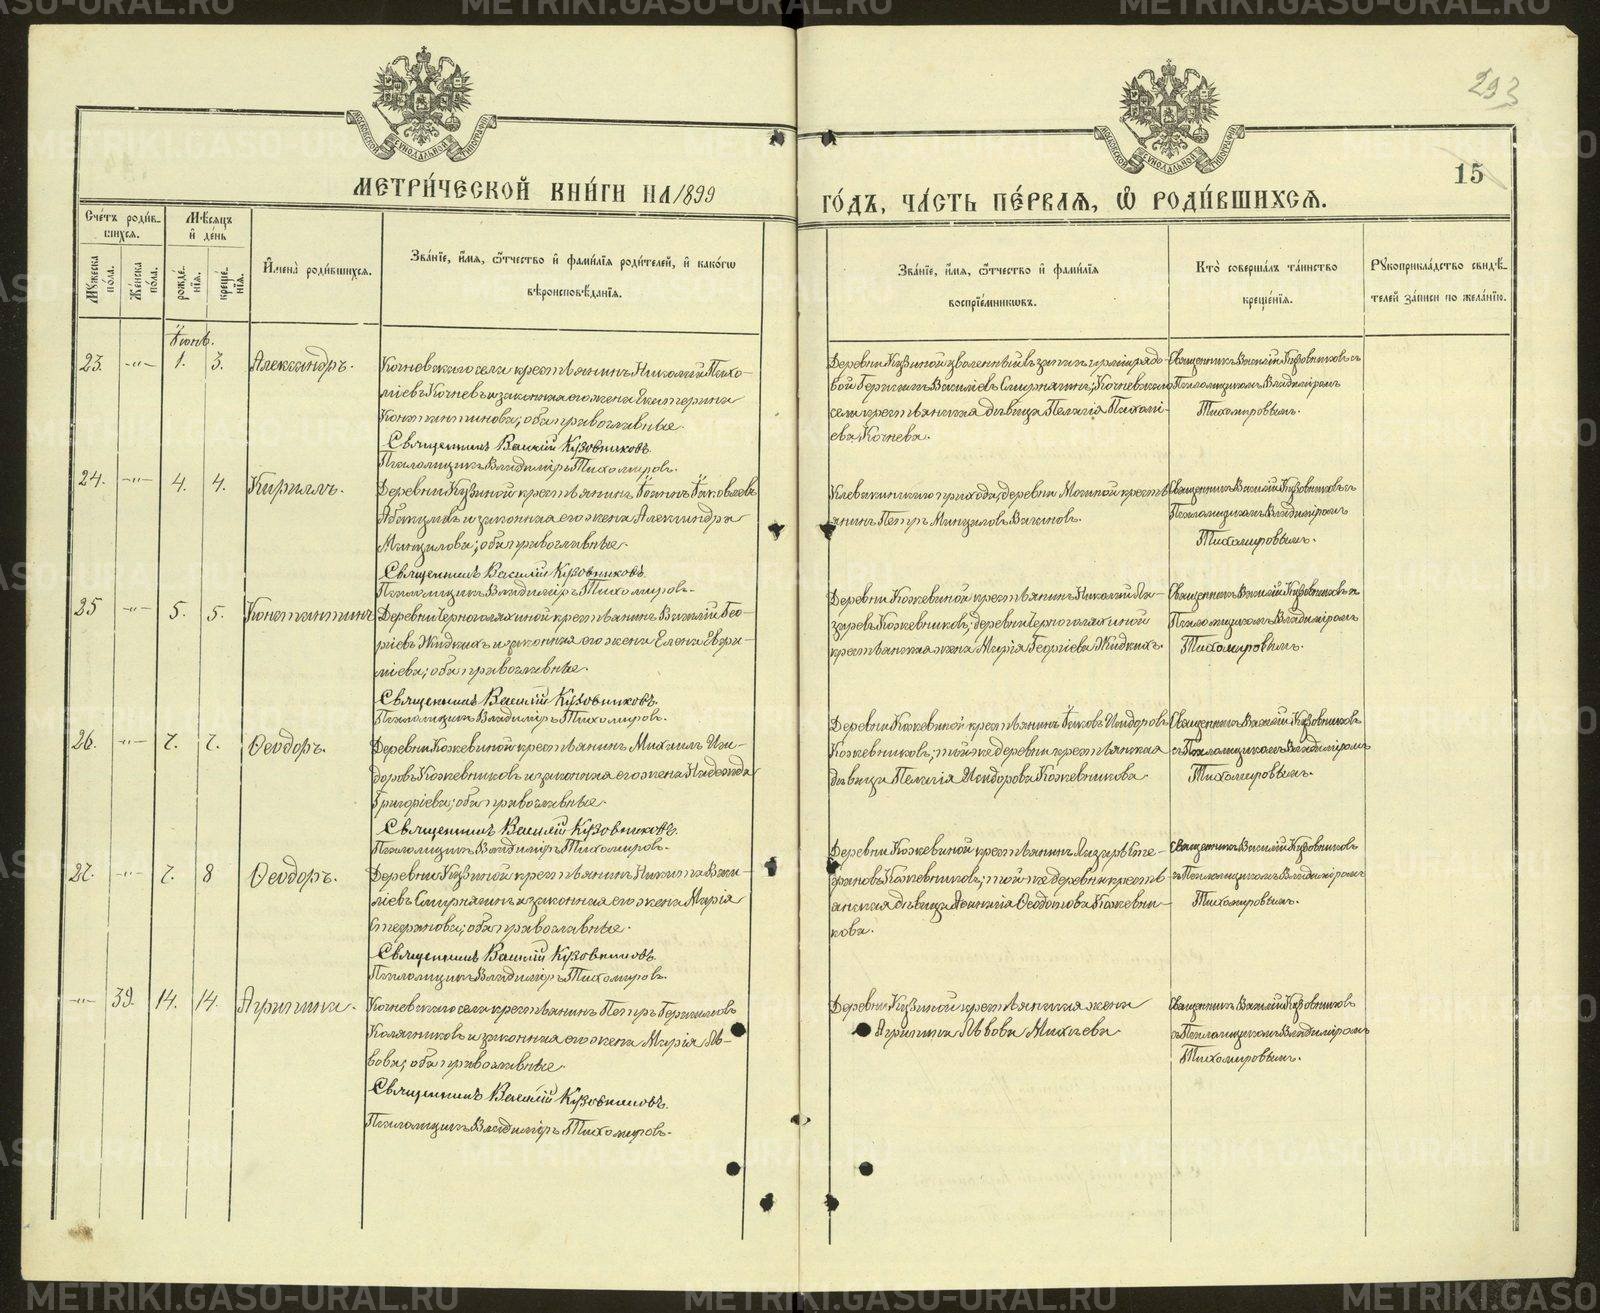 293
МОСКОВСКОЙ СѴНОДАЛЬНОЙ ТИПОГРАФІИ
МОСКОВСКОЙ СѴНОДАЛЬНОЙ ТИПОГРАФІИ
15
МЕТРИ́ЧЕСКОЙ КНИ́ГИ НА 1899
ГО́ДЪ, ЧА́СТЬ ПЕ́РВАЯ, Ѡ РОДИ́ВШИХСЯ.
Сче́тъ роди́в-
шихся.
Мѣ́сяцъ
и де́нь
Мꙋ́жеска
по́ла.
Же́нска
по́ла.
рожде́-
нїя.
креще́-
нїя.
И҆мена̀ роди́вшихся.
Зва́нїе, и҆́мя, ѻ҆́тчество и҆ фами́лїя роди́телей, и҆ како́гѡ
вѣроисповѣ́данїя.
Зва́нїе, и҆́мя, ѻ҆́тчество и҆ фами́лїя
воспрїе́мникѡвъ.
Кто̀ соверша́лъ та́инство
креще́нїя.
Рꙋкоприкла́дство свидѣ́-
телей за́писи по жела́нїю.
Іюнь.
23. -"- 1. 3. Александръ.
Кочневскаго села крестьянинъ Николай Пахо-
міевъ Кочневъ и законная его жена Екатерина
Константинова; оба православные.
Священникъ Василій Кузовниковъ.
Псаломщикъ Владиміръ Тихомировъ.
Деревни Кузиной уволенный въ запасъ арміи рядо-
вой Герасимъ Василіевъ Смирнягинъ; Кочневскаго
села крестьянская дѣвица Пелагія Пахомі-
ева Кочнева.
Священникъ Василій Кузовниковъ съ
Псаломщикомъ Владиміромъ
Тихомировымъ.
24. -"- 4. 4. Кириллъ.
Деревни Кузиной крестьянинъ Іоаннъ Іаковлевъ
Абакумовъ и законная его жена Александра
Мануилова; оба православные.
Священникъ Василій Кузовниковъ.
Псаломщикъ Владиміръ Тихомировъ.
Клевакинскаго прихода, деревни Мостовой кресть-
янинъ Петръ Мануиловъ
Священникъ Василій Кузовниковъ съ
Псаломщикомъ Владиміромъ
Тихомировымъ.
25 -"- 5. 5. Константинъ
Деревни Черноголяхиной крестьянинъ Василій Геор-
гіевъ Жидкихъ и законная его жена Елена
оба православные.
Священникъ Василій Кузовниковъ.
Псаломщикъ Владиміръ Тихомировъ.
Деревни Кожевиной крестьянинъ Николай Ла-
заревъ Кожевниковъ; деревни Черноголяхиной
крестьянская жена Марія Георгіева Жидкихъ.
Священникъ Василій Кузовниковъ съ
Псаломщикомъ Владиміромъ
Тихомировымъ.
26. -"- 7. 7. Ѳеодоръ.
Деревни Кожевиной крестьянинъ Михаилъ Иси-
доровъ Кожевниковъ и законная его жена Надежда
Григоріева; оба православные.
Священникъ Василій Кузовниковъ.
Псаломщикъ Владиміръ Тихомировъ.
Деревни Кожевиной крестьянинъ Іаковъ Исидоровъ
Кожевниковъ; той же деревни крестьянская
дѣвица Пелагія Исидорова Кожевникова.
Священникъ Василій Кузовниковъ
съ Псаломщикомъ Владиміромъ
Тихомировымъ.
27. -"- 7. 8 Ѳеодоръ.
Деревни Кузиной крестьянинъ Никита Васи-
ліевъ Смирнягинъ и законная его жена Марія
Стефанова; оба православные.
Священникъ Василій Кузовниковъ.
Псаломщикъ Владиміръ Тихомировъ.
Деревни Кожевиной крестьянинъ Лазарь Сте-
фановъ Кожевниковъ; той же деревни кресть-
янская дѣвица Ѳеодотова Кожевни-
кова.
Священникъ Василій Кузовниковъ
съ Псаломщикомъ Владиміромъ
Тихомировымъ.
-"- 39. 14. 14. Агрипина.
Кочневскаго села крестьянинъ Петръ Герасимовъ
Колясниковъ и законная его жена Марія Ль-
вова; оба православные.
Священникъ Василій Кузовниковъ.
Псаломщикъ Владиміръ Тихомировъ.
Деревни Кузиной крестьянская жена
Агрипина Львова Михаева.
Священникъ Василій Кузовниковъ
съ Псаломщикомъ Владиміромъ
Тихомировымъ.
METRIKI.GASO-URAL.RU